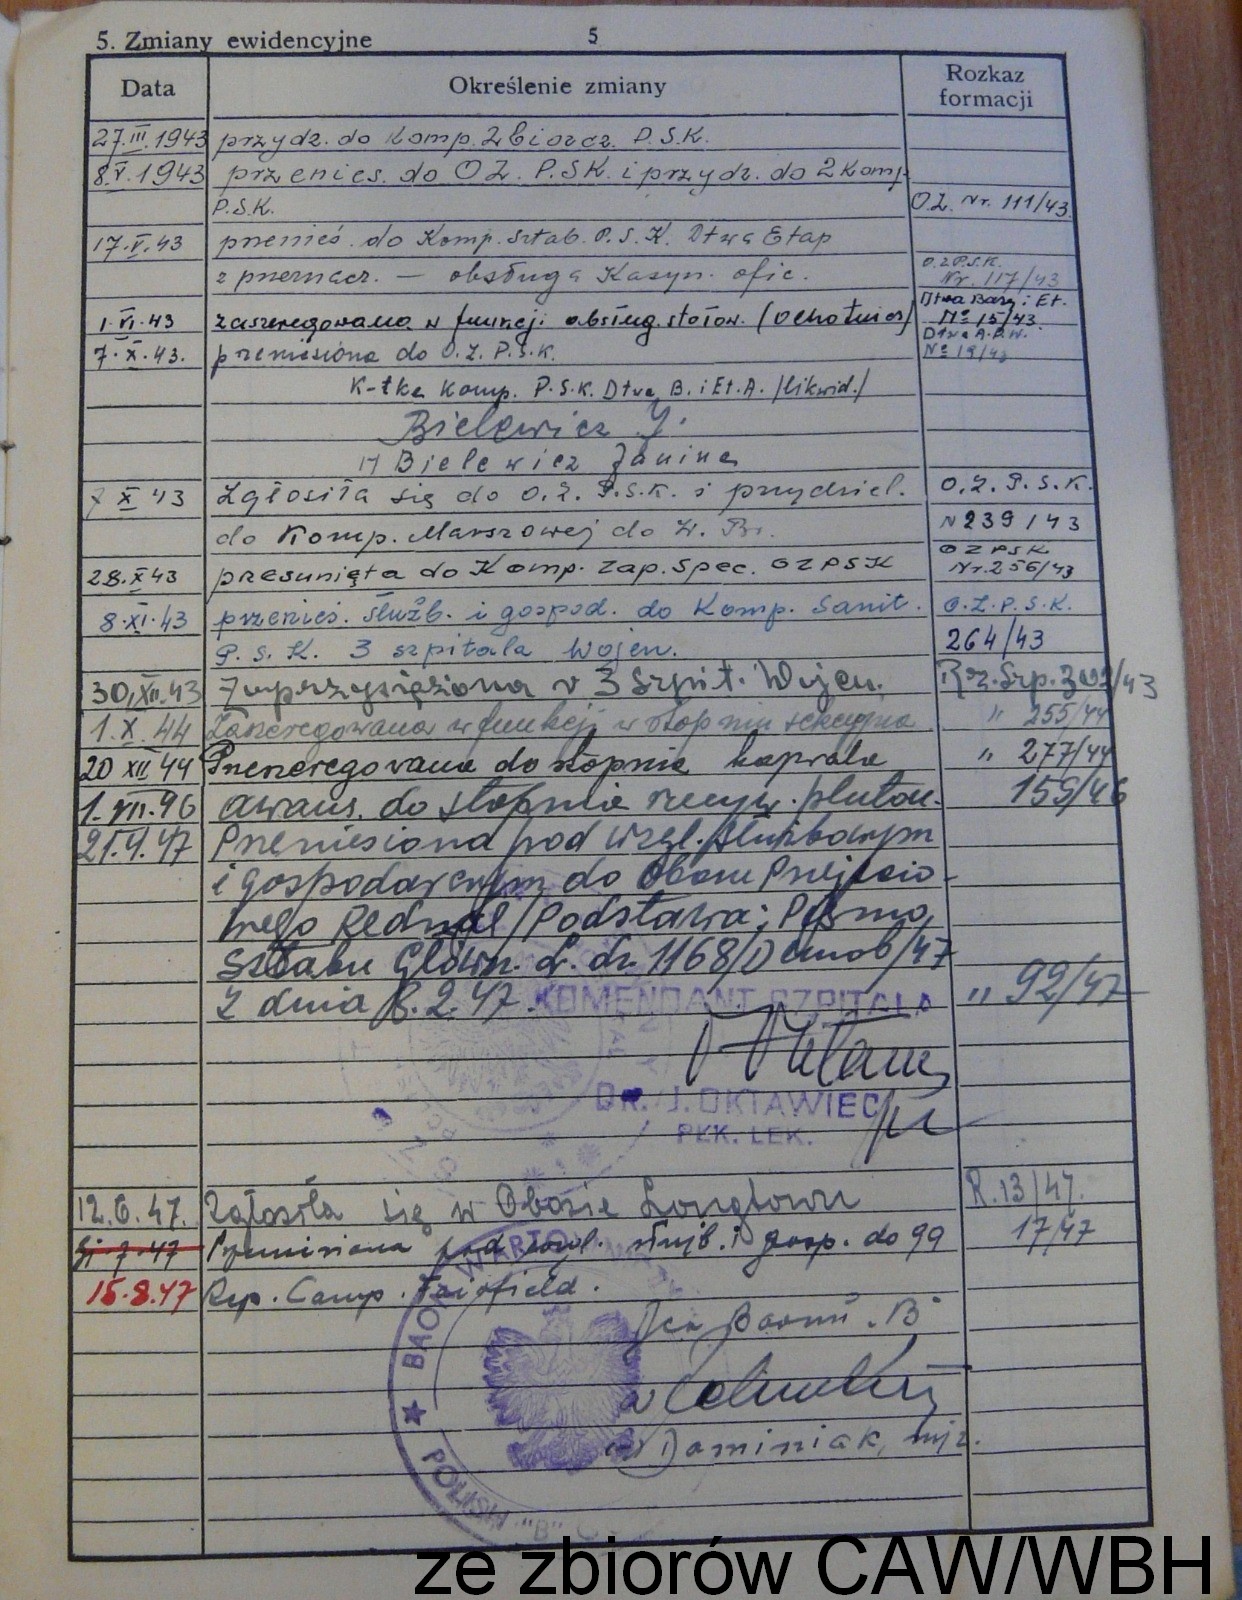 5. Zmiany ewidencyjne 5
Data Określenie zmiany Rozkaz formacji
27.III.1943 przydz. do Komp. Zbiorcz. P.S.K.
8.V.1943 przenies. do OZ. P.S.K. i przydz. do 2 Komp.
P.S.K. O.Z. Nr. 111/43.
17.V.43 przenieś. do Komp. Sztab. P.S.K. Dtwa Etap
z przeznacz. — obsługa Kasyn. ofic. O.Z.P.S.K. Nr. 117/43
1.VI.43 zaszeregowana w funkcji obsług. stołow. (ochotnicz) Dtwa Bazy i Et. No 15/43.
7.X.43. przeniesiona do O.Z. P.S.K. No 19/43
K-tka Komp. P.S.K. Dtwa B. i Et. A. /likwid./
Bielewicz J.
/-/ Bielewicz Janina
7 X 43 Zgłosiła się do O.Z. P.S.K. i przydziel. O.Z. P.S.K.
do Komp. Marszowej do W. Br. N 239/43
28.X.43 przesunięta do Komp. Zap. Spec. OZPSK OZPSK Nr. 256/43
8.XI.43 przenieś. służb. i gospod. do Komp. Sanit. O.Z.P.S.K.
P.S.K. 3 szpitala Wojen. 264/43
30.XII.43 Zaprzysiężona w 3 Szpit. Wojen. Rz. Szp. 302/43
1.X.44 Zaszeregowana w funkcji w stopniu sekcyjna " 255/44
20 XII 44 Przeszeregowana do stopnia kaprala " 277/44
1.VII.46 awans. do stopnia rzeczyw. pluton. 159/46
21.V.47 Przeniesiona pod wzgl. służbowym
i gospodarczym do Obozu Przejścio-
wego Rednal/Podstawa: Pismo
Sztabu Główn. L. dz. 1168/Demob/47
z dnia 8.2.47. " 92/47
KOMENDANT SZPITALA
DR. J. OKTAWIEC
PŁK. LEK.
12.6.47. Zgłosiła się w Obozie Longtown R.13/47.
31.7.47 Przeniesiona pod wzgl. służb. i gosp. do 99 17/47
15.8.47 Rep. Camp. Fairfield.
Dca Baonu "B"
/-/ Dominiak, mjr.
BAON WARTO
POLISH "B"
ze zbiorów CAW/WBH